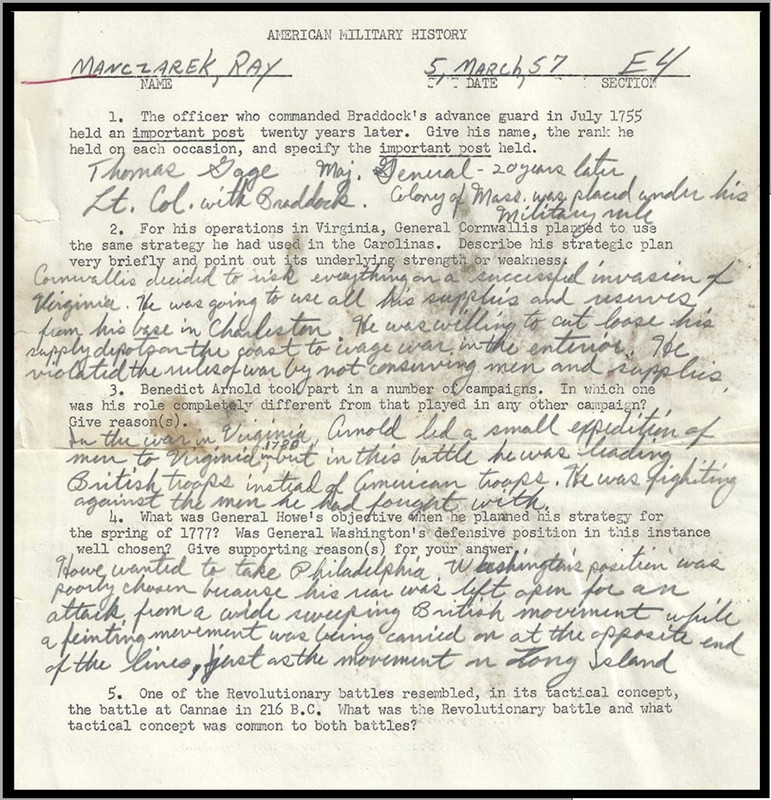 AMERICAN MILITARY HISTORY
MANCZAREK, RAY 5, MARCH, 57 E4
NAME DATE SECTION
1. The officer who commanded Braddock's advance guard in July 1755
held an important post twenty years later. Give his name, the rank he
held on each occasion, and specify the important post held.
Thomas Gage Maj. General - 20 years later
Lt. Col. with Braddock. Colony of Mass. was placed under his
Military rule
2. For his operations in Virginia, General Cornwallis planned to use
the same strategy he had used in the Carolinas. Describe his strategic plan
very briefly and point out its underlying strength or weakness.
Cornwallis decided to risk everything on a successful invasion of
Virginia. He was going to use all his supplies and reserves
from his base in Charleston. He was willing to cut loose his
supply depots on the coast to wage war in the interior. He
violated the rules of war by not conserving men and supplies.
3. Benedict Arnold took part in a number of campaigns. In which one
was his role completely different from that played in any other campaign?
Give reason(s).
In the war in Virginia, Arnold led a small expedition of
men to Virginia in 1780 but in this battle he was leading
British troops instead of American troops. He was fighting
against the men he had fought with.
4. What was General Howe's objective when he planned his strategy for
the spring of 1777? Was General Washington's defensive position in this instance
well chosen? Give supporting reason(s) for your answer
Howe wanted to take Philadelphia. Washington's position was
poorly chosen because his rear was left open for an
attack from a wide sweeping British movement while
a feinting movement was being carried on at the opposite end
of the lines, just as the movement on Long Island
5. One of the Revolutionary battles resembled, in its tactical concept,
the battle at Cannae in 216 B.C. What was the Revolutionary battle and what
tactical concept was common to both battles?